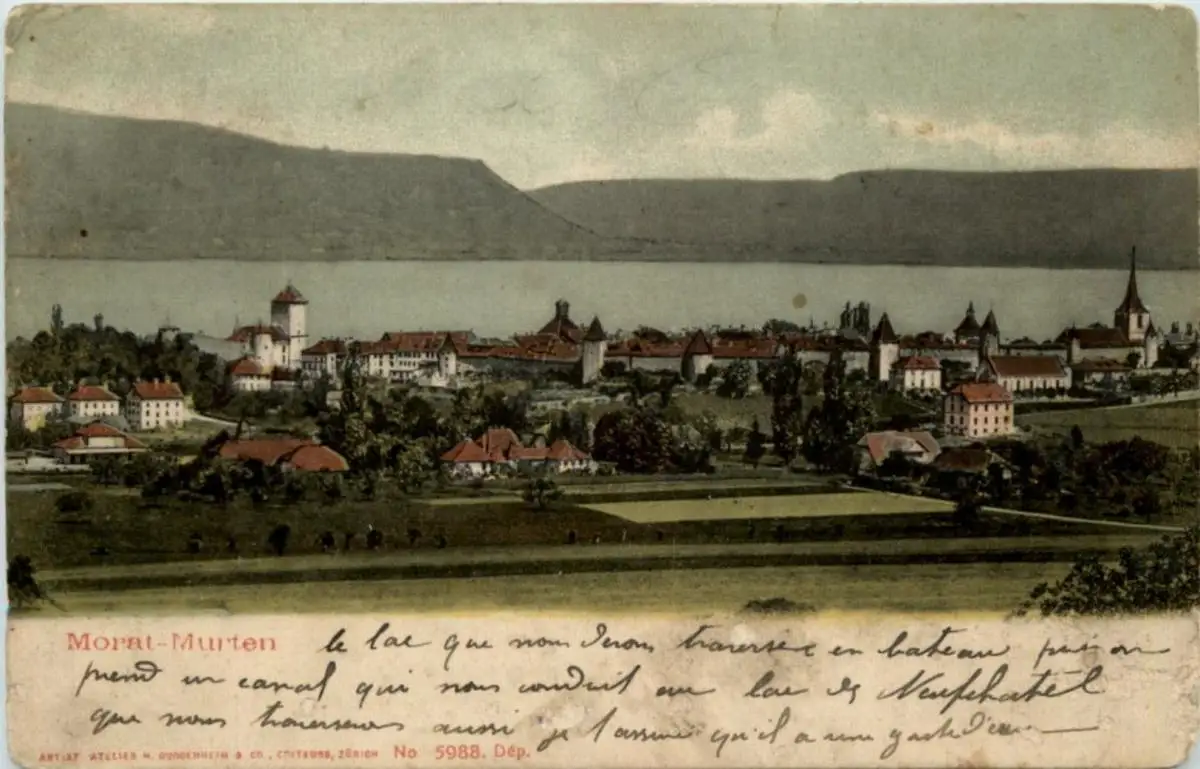 Morat-Murten
le lac que nous devons traverser en bateau puis on
prend un canal qui nous conduit au lac de Neufchatel
que nous traversons aussi je t'assure qu'il a une
ARTIST. ATELIER H. GUGGENHEIM & CO., EDITEURS, ZÜRICH No 5988. Dép.